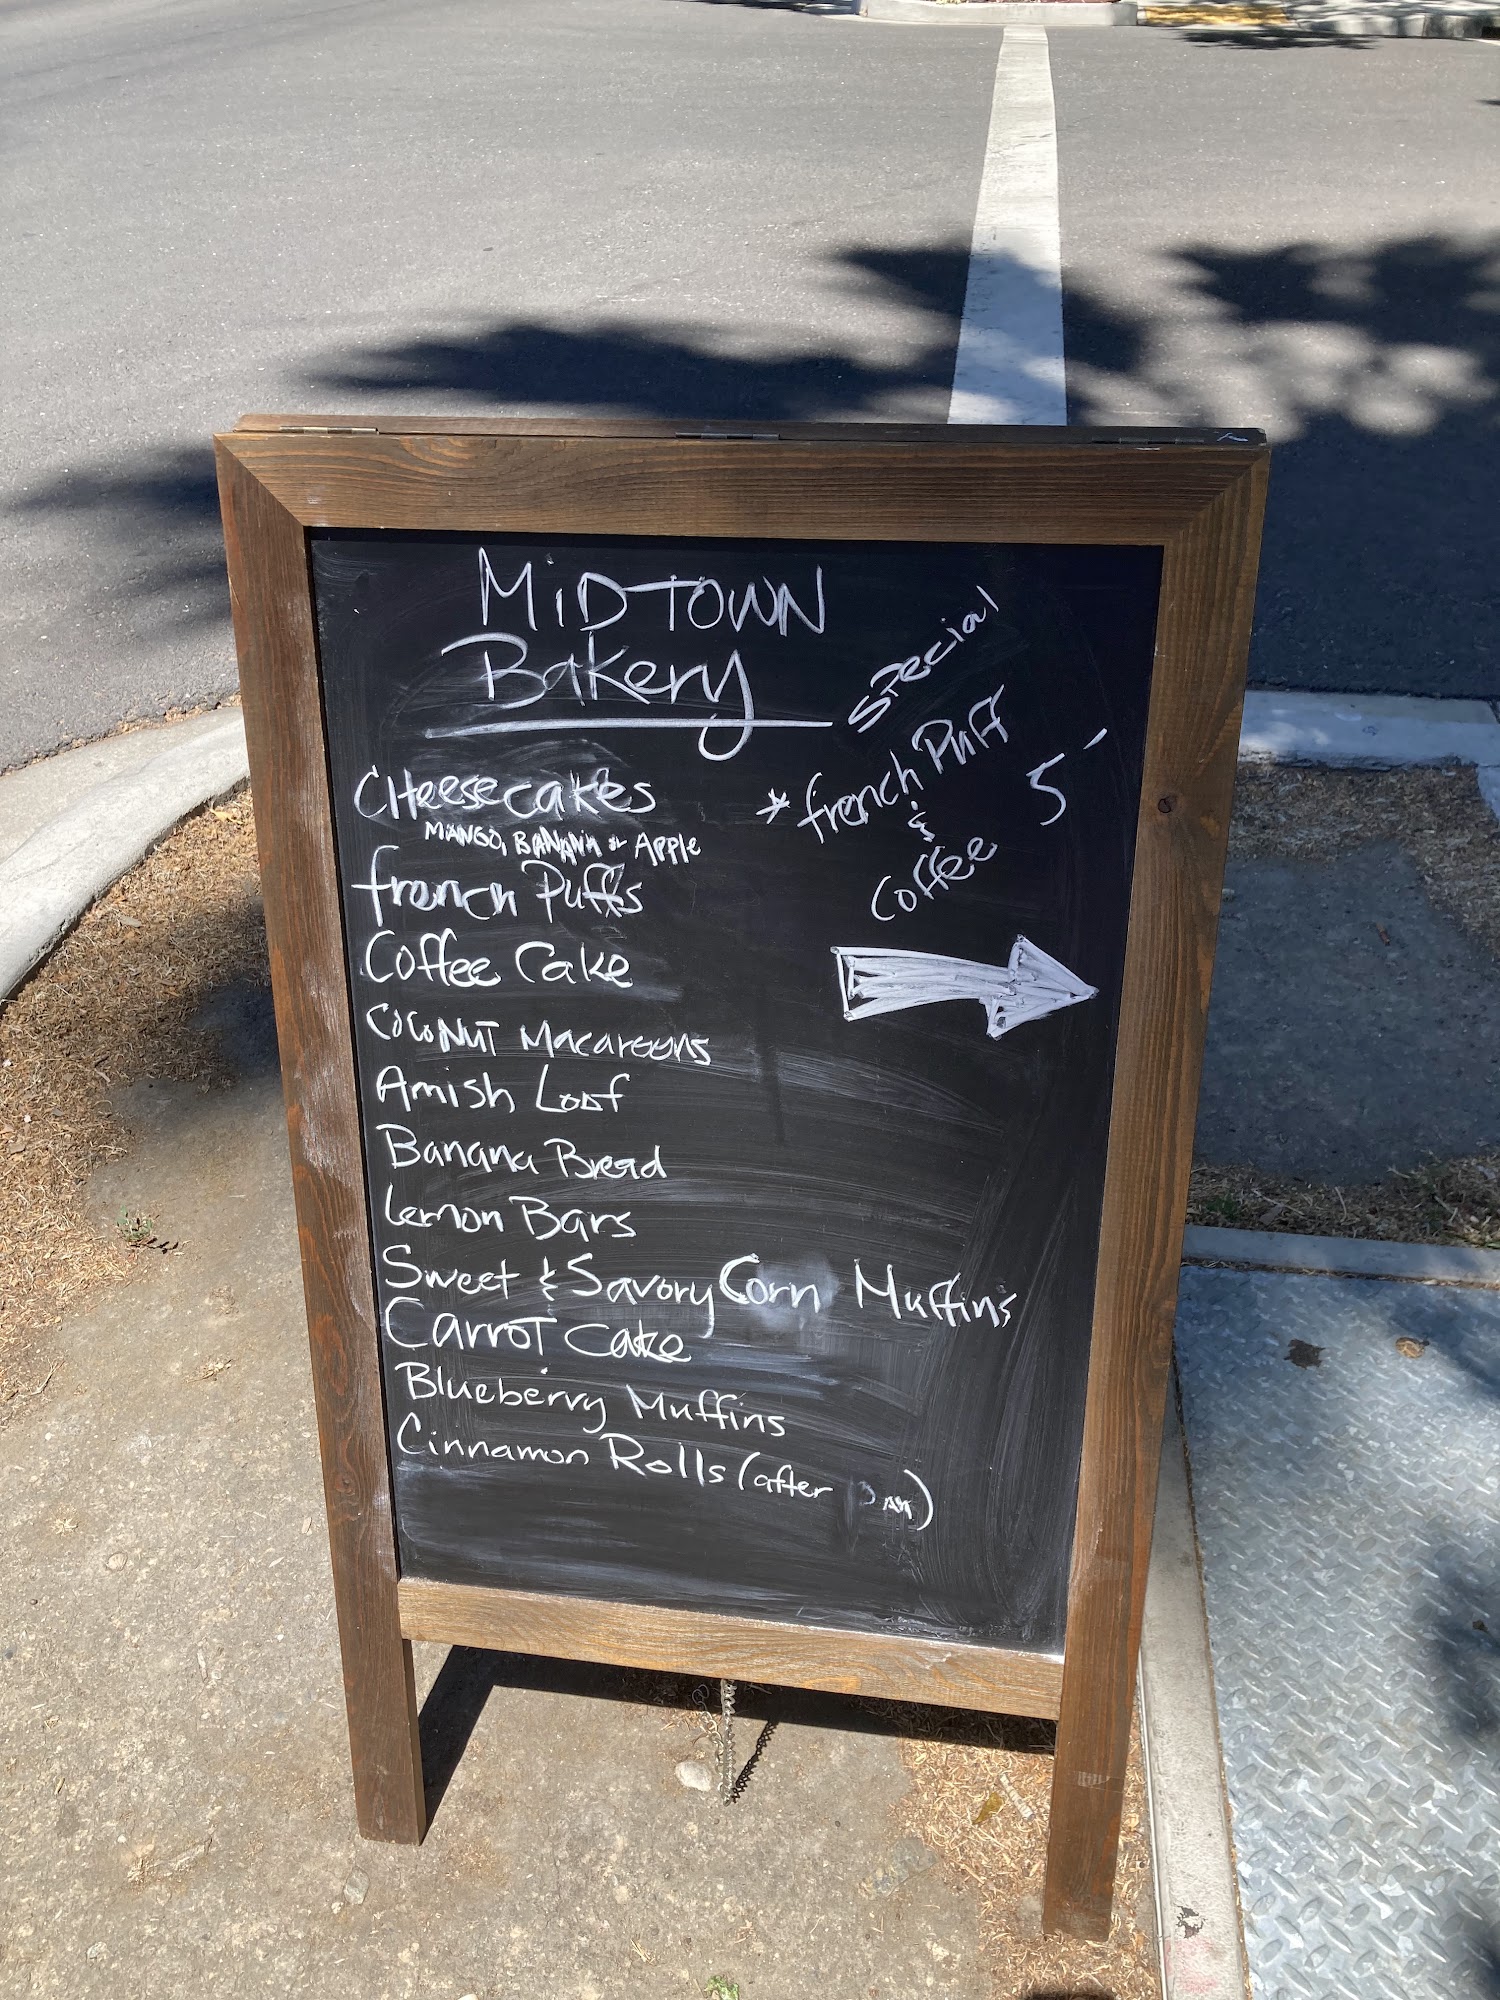 MiDTOWN
Bakery
CHeesecakes
MANGO, BANANA or Apple
french Puffs
Coffee Cake
COCONUT Macaroons
Amish Loaf
Banana Bread
Lemon Bars
Sweet & Savory Corn Muffins
CARROT Cake
Blueberry Muffins
Cinnamon Rolls (after
Special
* french Puff
&
Coffee
5